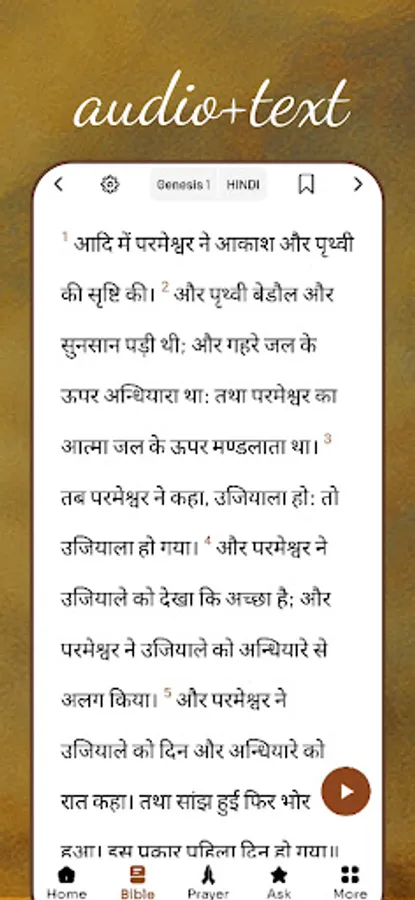 audio+text
Genesis 1 HINDI
1 आदि में परमेश्वर ने आकाश और पृथ्वी
की सृष्टि की। 2 और पृथ्वी बेडौल और
सुनसान पड़ी थी; और गहरे जल के
ऊपर अन्धियारा था: तथा परमेश्वर का
आत्मा जल के ऊपर मण्डलाता था। 3
तब परमेश्वर ने कहा, उजियाला हो: तो
उजियाला हो गया। 4 और परमेश्वर ने
उजियाले को देखा कि अच्छा है; और
परमेश्वर ने उजियाले को अन्धियारे से
अलग किया। 5 और परमेश्वर ने
उजियाले को दिन और अन्धियारे को
रात कहा। तथा सांझ हुई फिर भोर
हुआ। इस प्रकार पहिला दिन हो गया॥
Home Bible Prayer Ask More